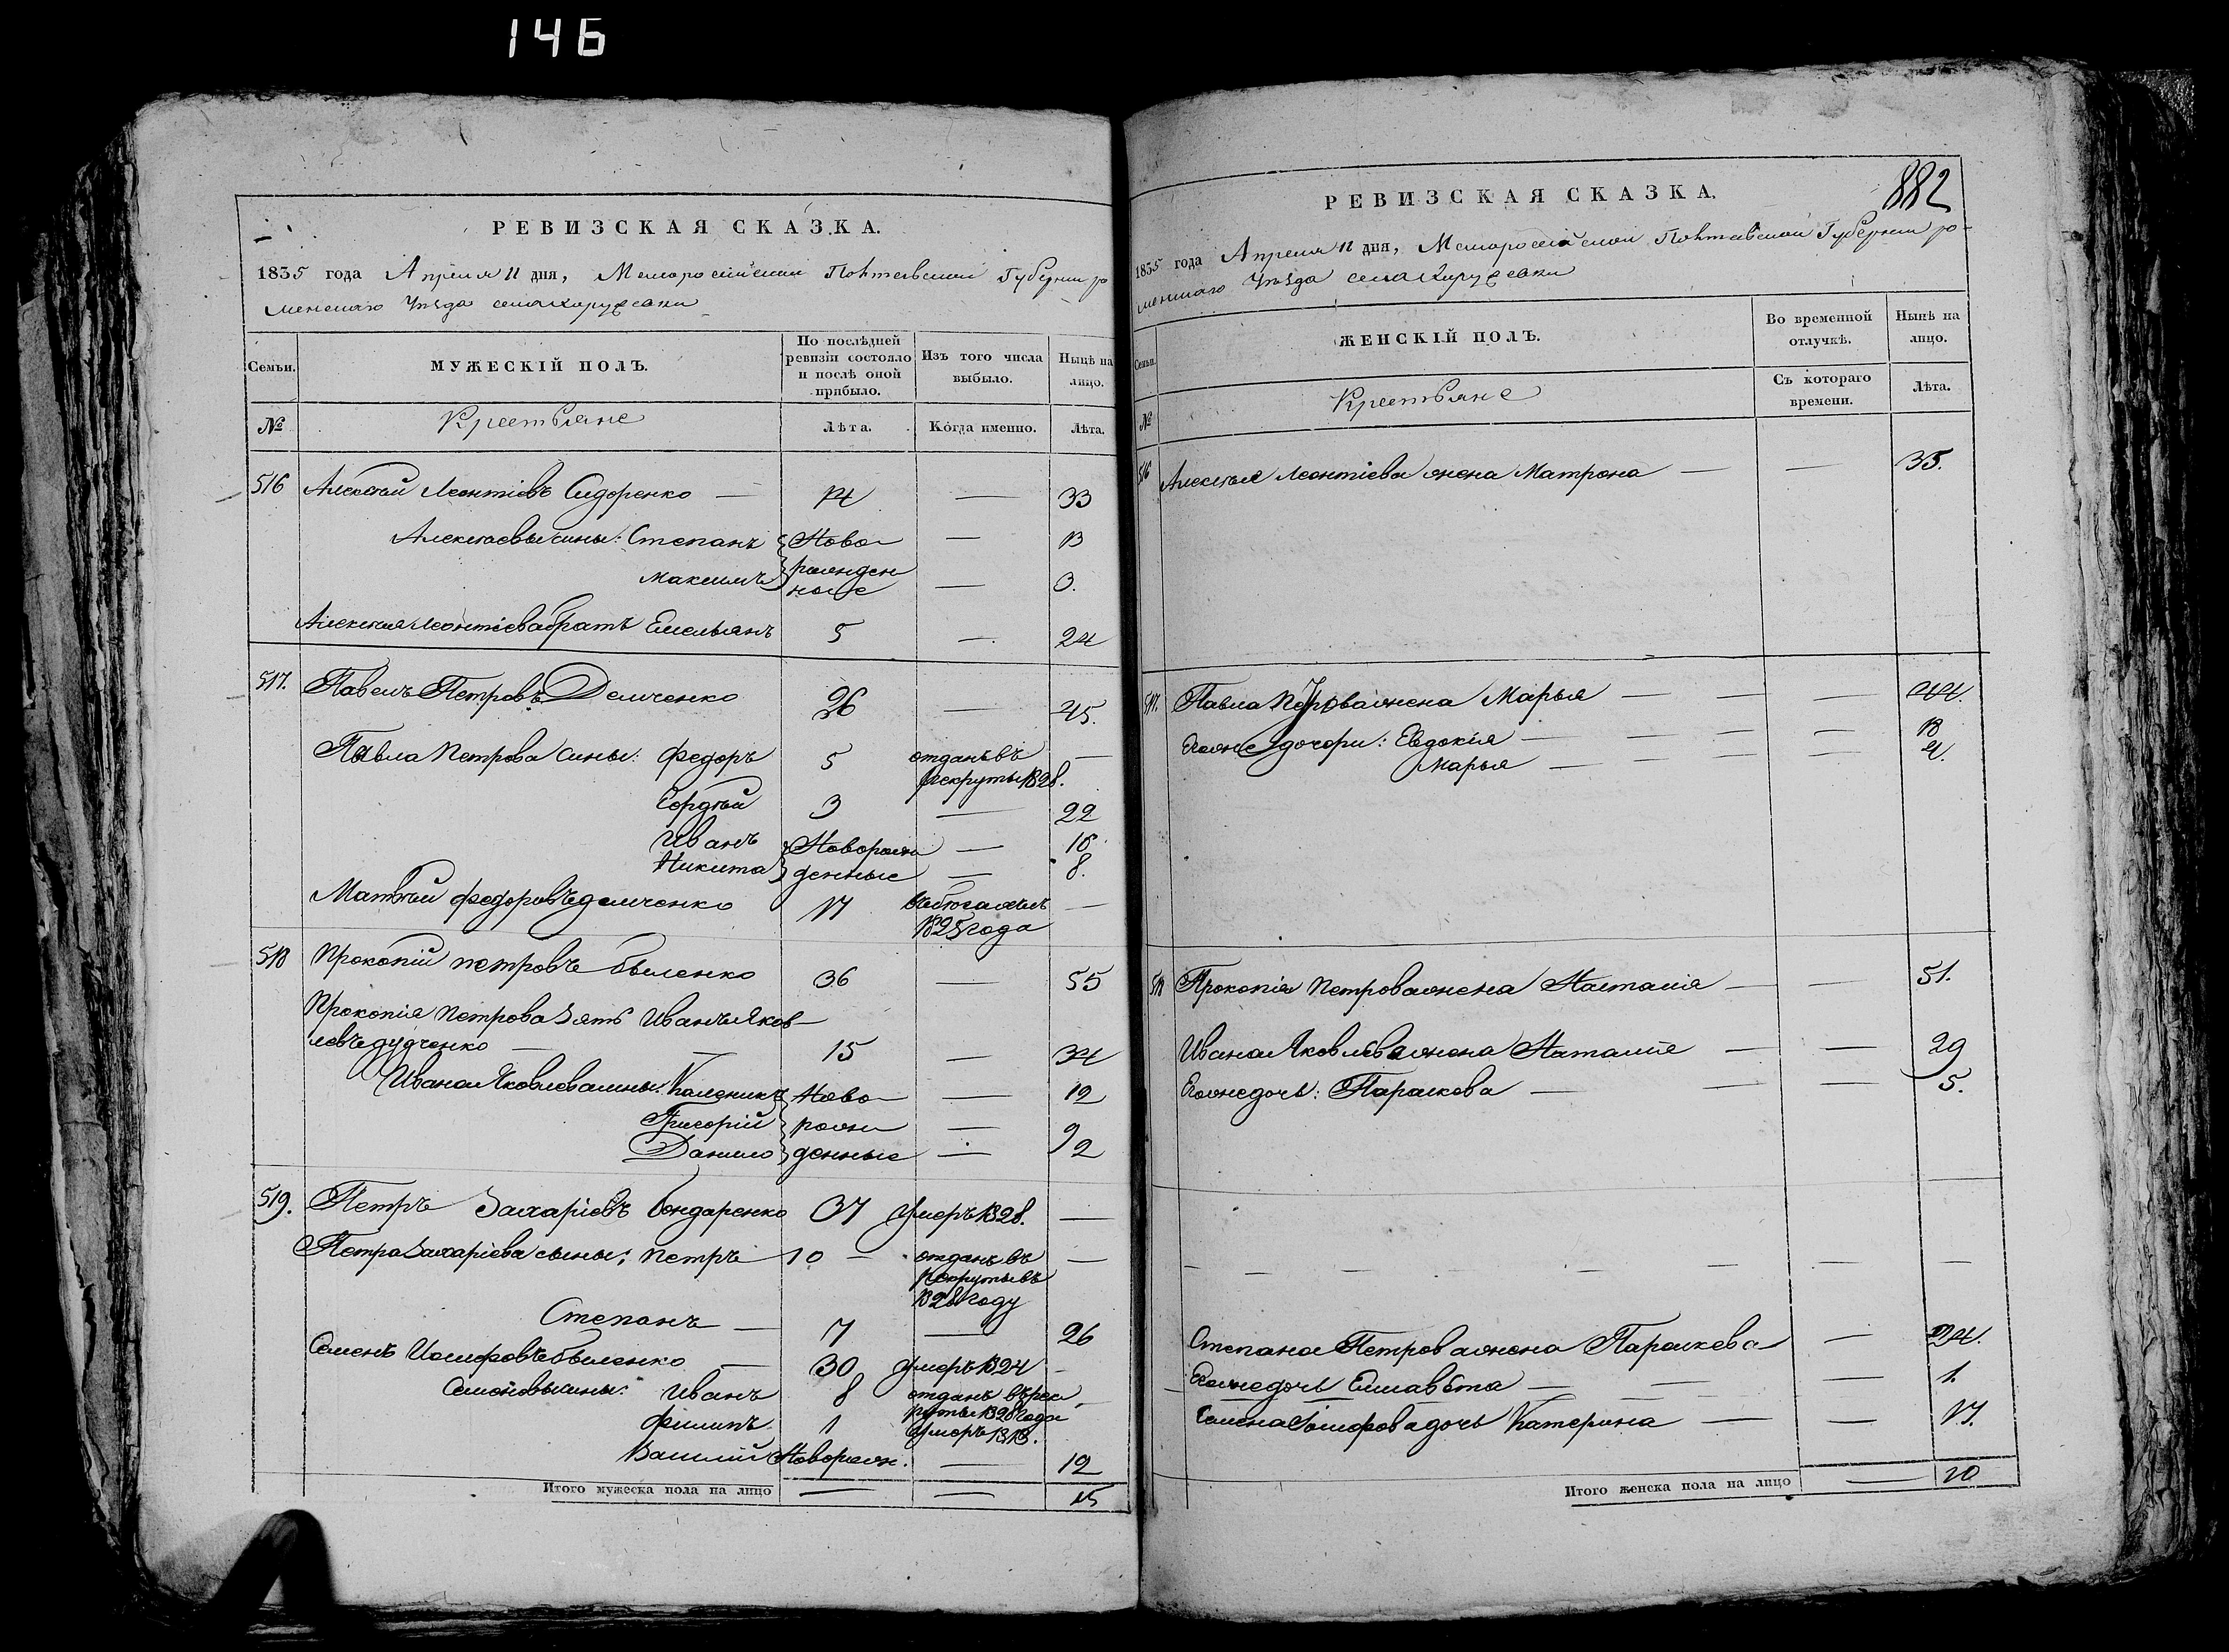 146
РЕВИЗСКАЯ СКАЗКА.
1835 года Апреля 11 дня, Малороссійской Полтавской Губерніи ро
менскаго Уѣзда села
Семьи. МУЖЕСКІЙ ПОЛЪ. По послѣдней ревизіи состояло и послѣ оной прибыло. Изъ того числа выбыло. Нынѣ на лицо.
№ Крестьяне Лѣта. Когда именно. Лѣта.
516 Алексѣй Леонтіевъ Сидоренко — 14 — 33
Алексѣевы сины: Степанъ Ново — 13
Максимъ рожден ные — 3.
Алексѣя Леонтіева братъ Емельянъ 5 — 24
517. Павелъ Петровъ Демченко 26 — 45.
Павла Петрова сины: Федоръ 5 отданъ въ —
рекруты 1828.
Гордѣй 3 — 22
Иванъ Новорож — 16
Никита денные — 8.
Матвѣй Федоровъ Демченко 17 —
1825 года
518 Прокопій Петровъ Быленко 36 — 55
Прокопія Петрова зять Иванъ Яков
левъ Дудченко — — 15 — 34
Ивана Яковлева сины: Каленикъ Ново — 12
Григорій рож — 9
Данило денные — 2
519. Петръ Захаріевъ Бондаренко 37 Умеръ 1828. —
Петра Захаріева сыны: Петръ 10 — отданъ въ —
рекруты въ
1828 году
Степанъ — 7 — 26
Семенъ Іосифовъ Быленко — 30 Умеръ 1824 —
Семеновы сины: Иванъ 8 отданъ въ рек —
руты 1828 года
Филипъ 1 Умеръ 1818.
Василій Новорож. — 12
Итого мужеска пола на лицо — — 15
882
РЕВИЗСКАЯ СКАЗКА.
1835 года Апреля 11 дня, Малороссійской Полтавской Губерніи ро-
менскаго Уѣзда села
Семьи. ЖЕНСКІЙ ПОЛЪ. Во временной отлучкѣ. Нынѣ на лицо.
№ Крестьяне Съ котораго времени. Лѣта.
516 Алексѣя Леонтіева жена Матрона — — 35.
517. Павла Петрова жена Марья — — — 44.
Егожъ дочери: Евдокія — — — — — 13
Марья — — — — — 4.
518 Прокопія Петрова жена Наталія — — 51.
Ивана Яковлева жена Наталія — — 29
Егожъ дочь: Параскева — — — 5.
— — — — — — — —
Степана Петрова жена Параскева — 24.
Егожъ дочь Елисавѣта — — — 1.
Семена Іосифова дочь Катерина — — 17.
Итого женска пола на лицо — 10